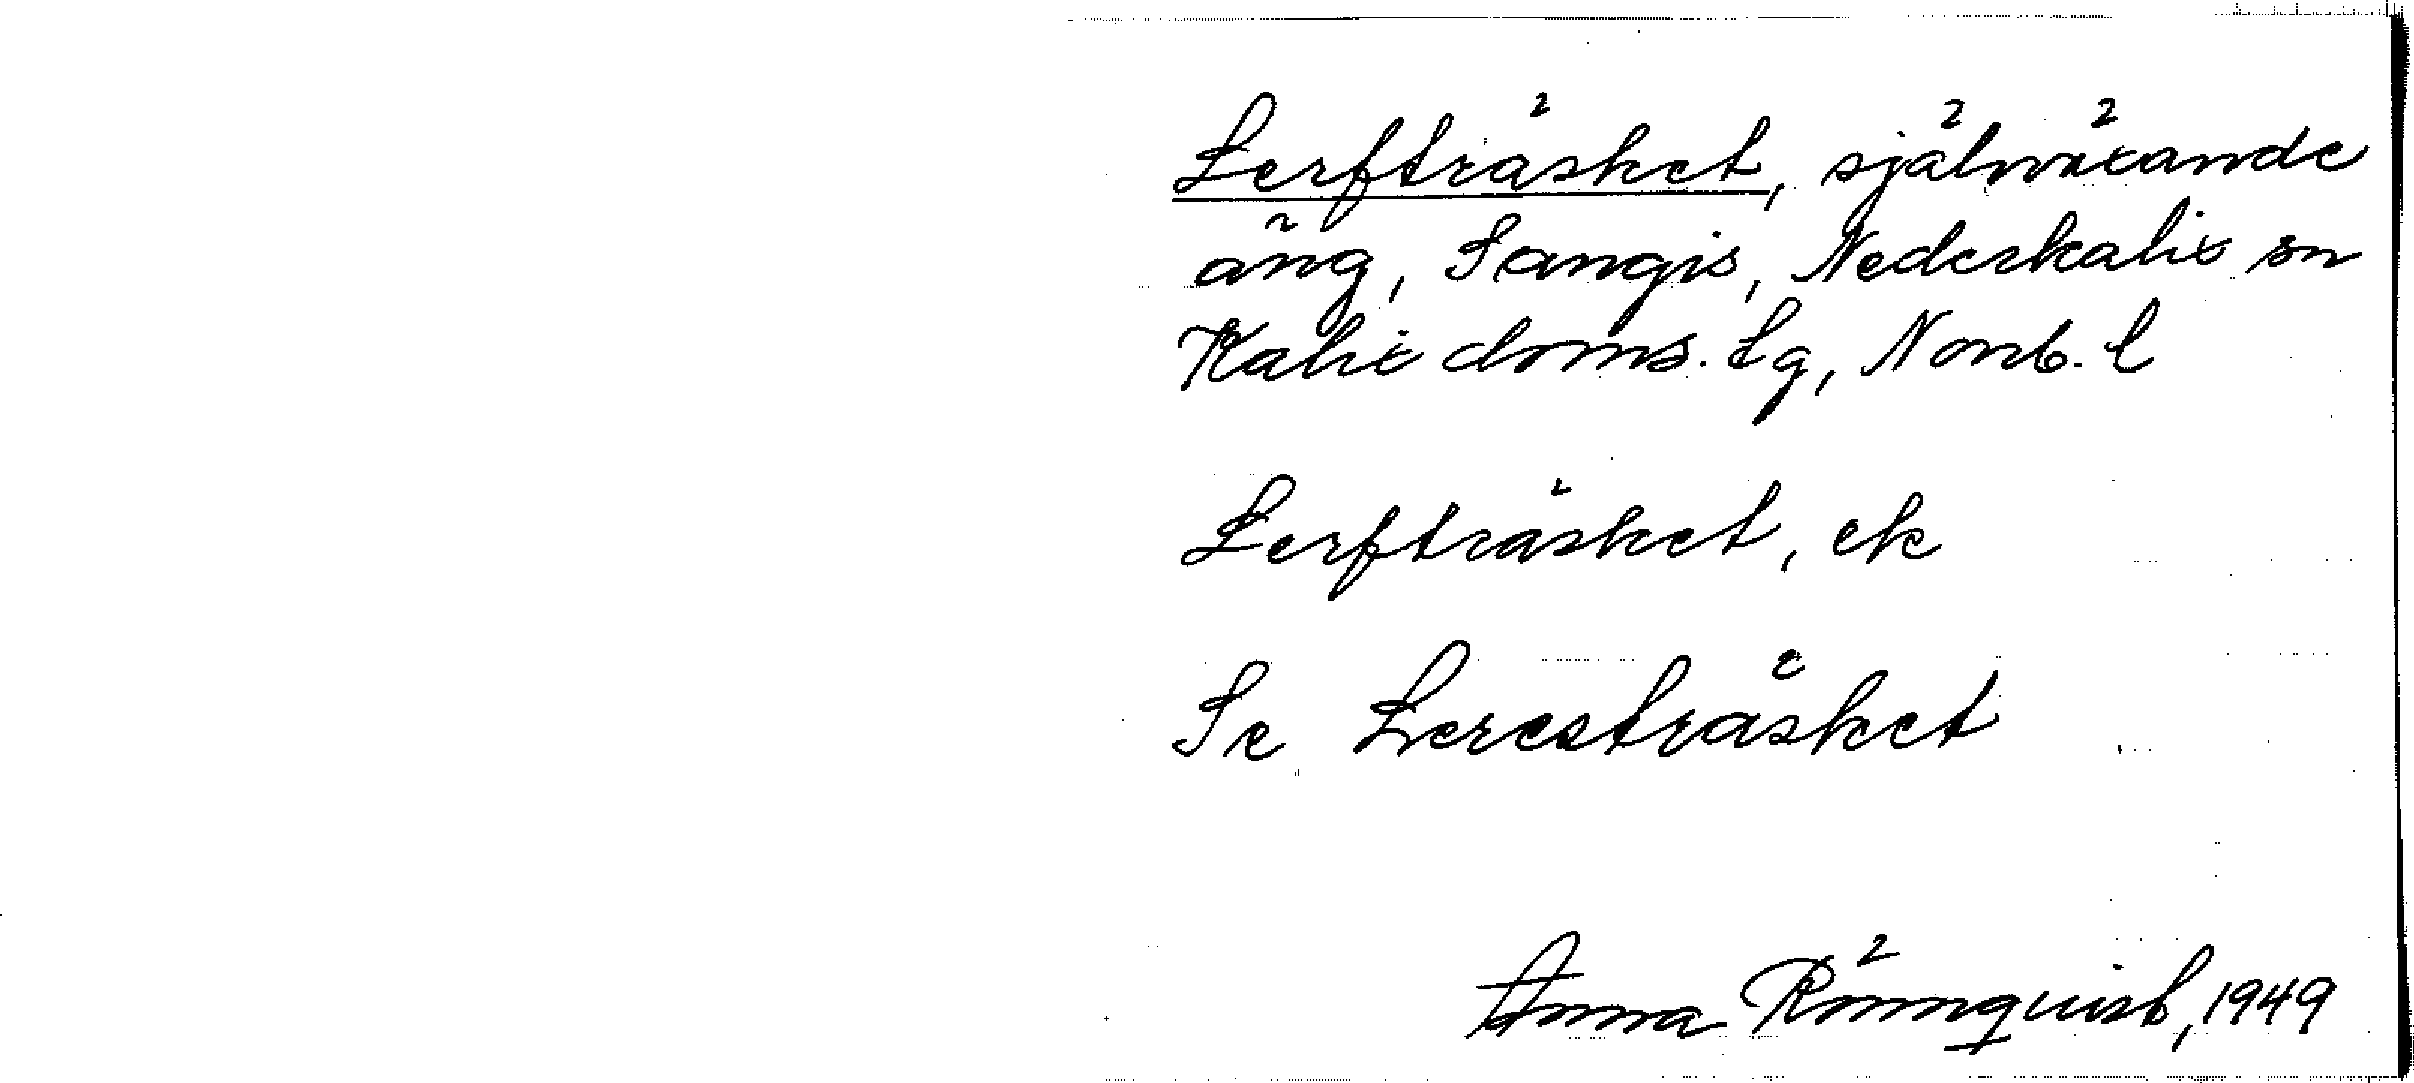 Lerfträsket, självväxande
äng, Sangis, Nederkalix sn
Kalix doms. lg, Norrb. l
Lerfträsket, ek
Se Lereströsket
Anna Rönnquist, 1949